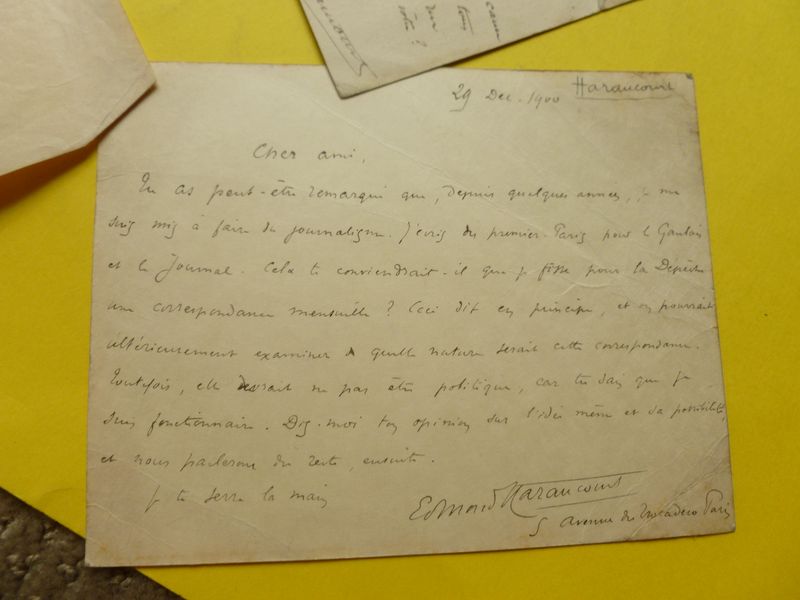 29 Dec. 1900 Haraucourt
Cher ami,
Tu as peut-être remarqué que, depuis quelques années, je me
suis mis à faire du journalisme. J'écris des premier-Paris pour le Gaulois
et le Journal. Cela te conviendrait-il que je fisse pour la Dépêche
une correspondance mensuelle ? Ceci dit en principe, et on pourrait
ultérieurement examiner quelle nature serait cette correspondance.
Toutefois, elle devrait ne pas être politique, car tu sais que je
suis fonctionnaire. Dis-moi ton opinion sur l'idée même et sa possibilité,
et nous parlerons du reste, ensuite.
Je te serre la main
Edmond Haraucourt
5 avenue du Trocadero Paris